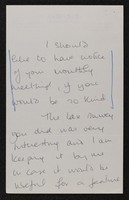 I should
like to have notice
of your monthly
meetings, if you
would be so kind.
The last survey
now and was very
interesting and I am
keeping it by me
in case it would be
useful for a future